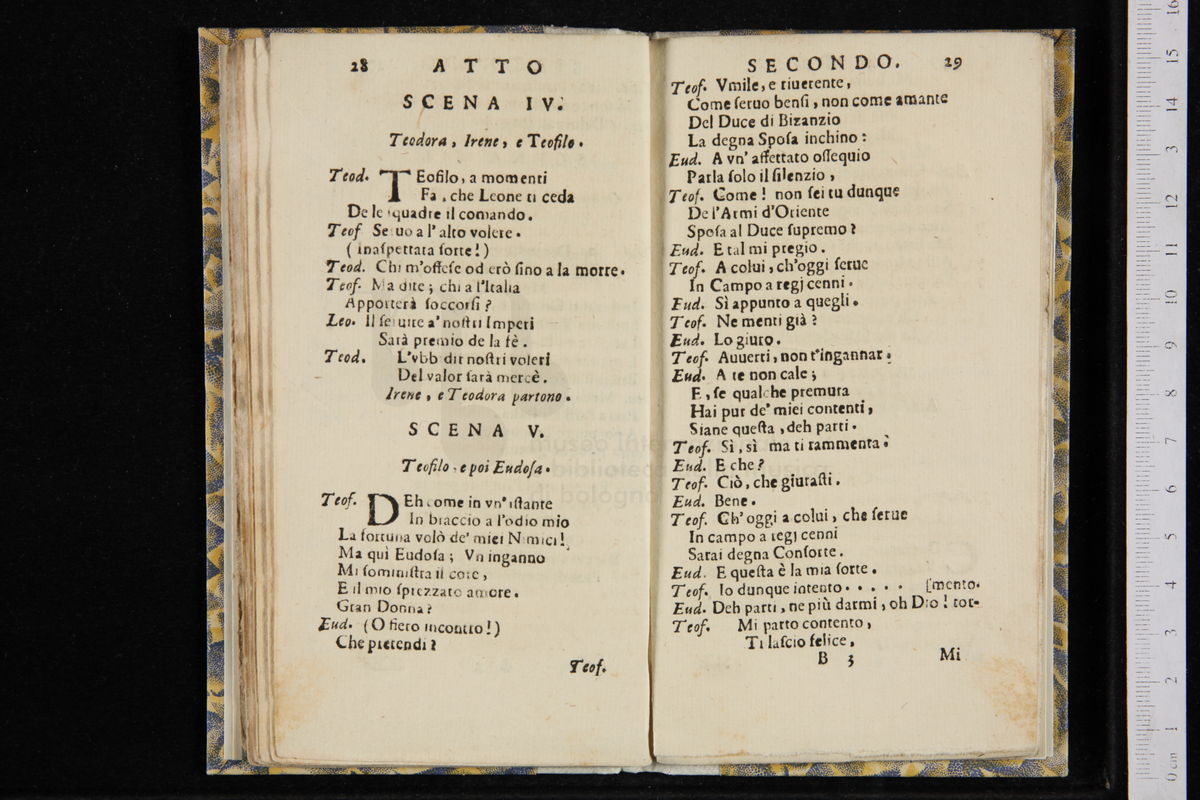 28 ATTO
SCENA IV.
Teodora, Irene, e Teofilo.
Teod. TEofilo, a momenti
Fa, che Leone ti ceda
De le squadre il comando.
Teof Seruo a l'alto volere.
(Inaspettata sorte!)
Teod. Chi m'offese od erò sino a la morte.
Teof. Ma dite; chi a l'Italia
Apporterà soccorsi?
Leo. Il seruire a' nostri Imperi
Sarà premio de la fè.
Teod. L'vbb dir nostri voleri
Del valor sarà mercè.
Irene, e Teodora partono.
SCENA V.
Teofilo, e poi Eudosa.
Teof. DEh come in vn' istante
In braccio a l'odio mio
La fortuna volò de' miei N mici!
Ma quì Eudosa; Vn inganno
Mi somministra il core,
E il mio sprezzato amore.
Gran Donna?
Eud. (O fiero incontro!)
Che pretendi?
Teof.
SECONDO. 29
Teof. Vmile, e riuerente,
Come seruo bensì, non come amante
Del Duce di Bizanzio
La degna Sposa inchino:
Eud. A vn' affettato ossequio
Parla solo il silenzio,
Teof. Come! non sei tu dunque
De l'Armi d'Oriente
Sposa al Duce supremo?
Eud. E tal mi pregio.
Teof. A colui, ch'oggi serue
In Campo a regj cenni.
Eud. Sì appunto a quegli.
Teof. Ne menti già?
Eud. Lo giuro.
Teof. Auuerti, non t'ingannar.
Eud. A te non cale;
E, se qualche premura
Hai pur de' miei contenti,
Siane questa, deh parti.
Teof. Sì, sì ma ti rammenta.
Eud. E che?
Teof. Ciò, che giurasti.
Eud. Bene.
Teof. Ch' oggi a colui, che serue
In campo a regj cenni
Sarai degna Consorte.
Eud. E questa è la mia sorte.
Teof. Io dunque intento..... [mento.
Eud. Deh parti, ne più darmi, oh Dio! tor-
Teof. Mi parto contento,
Ti lascio felice,
B 3 Mi
museo internazionale
biblioteca della musica
di bologna